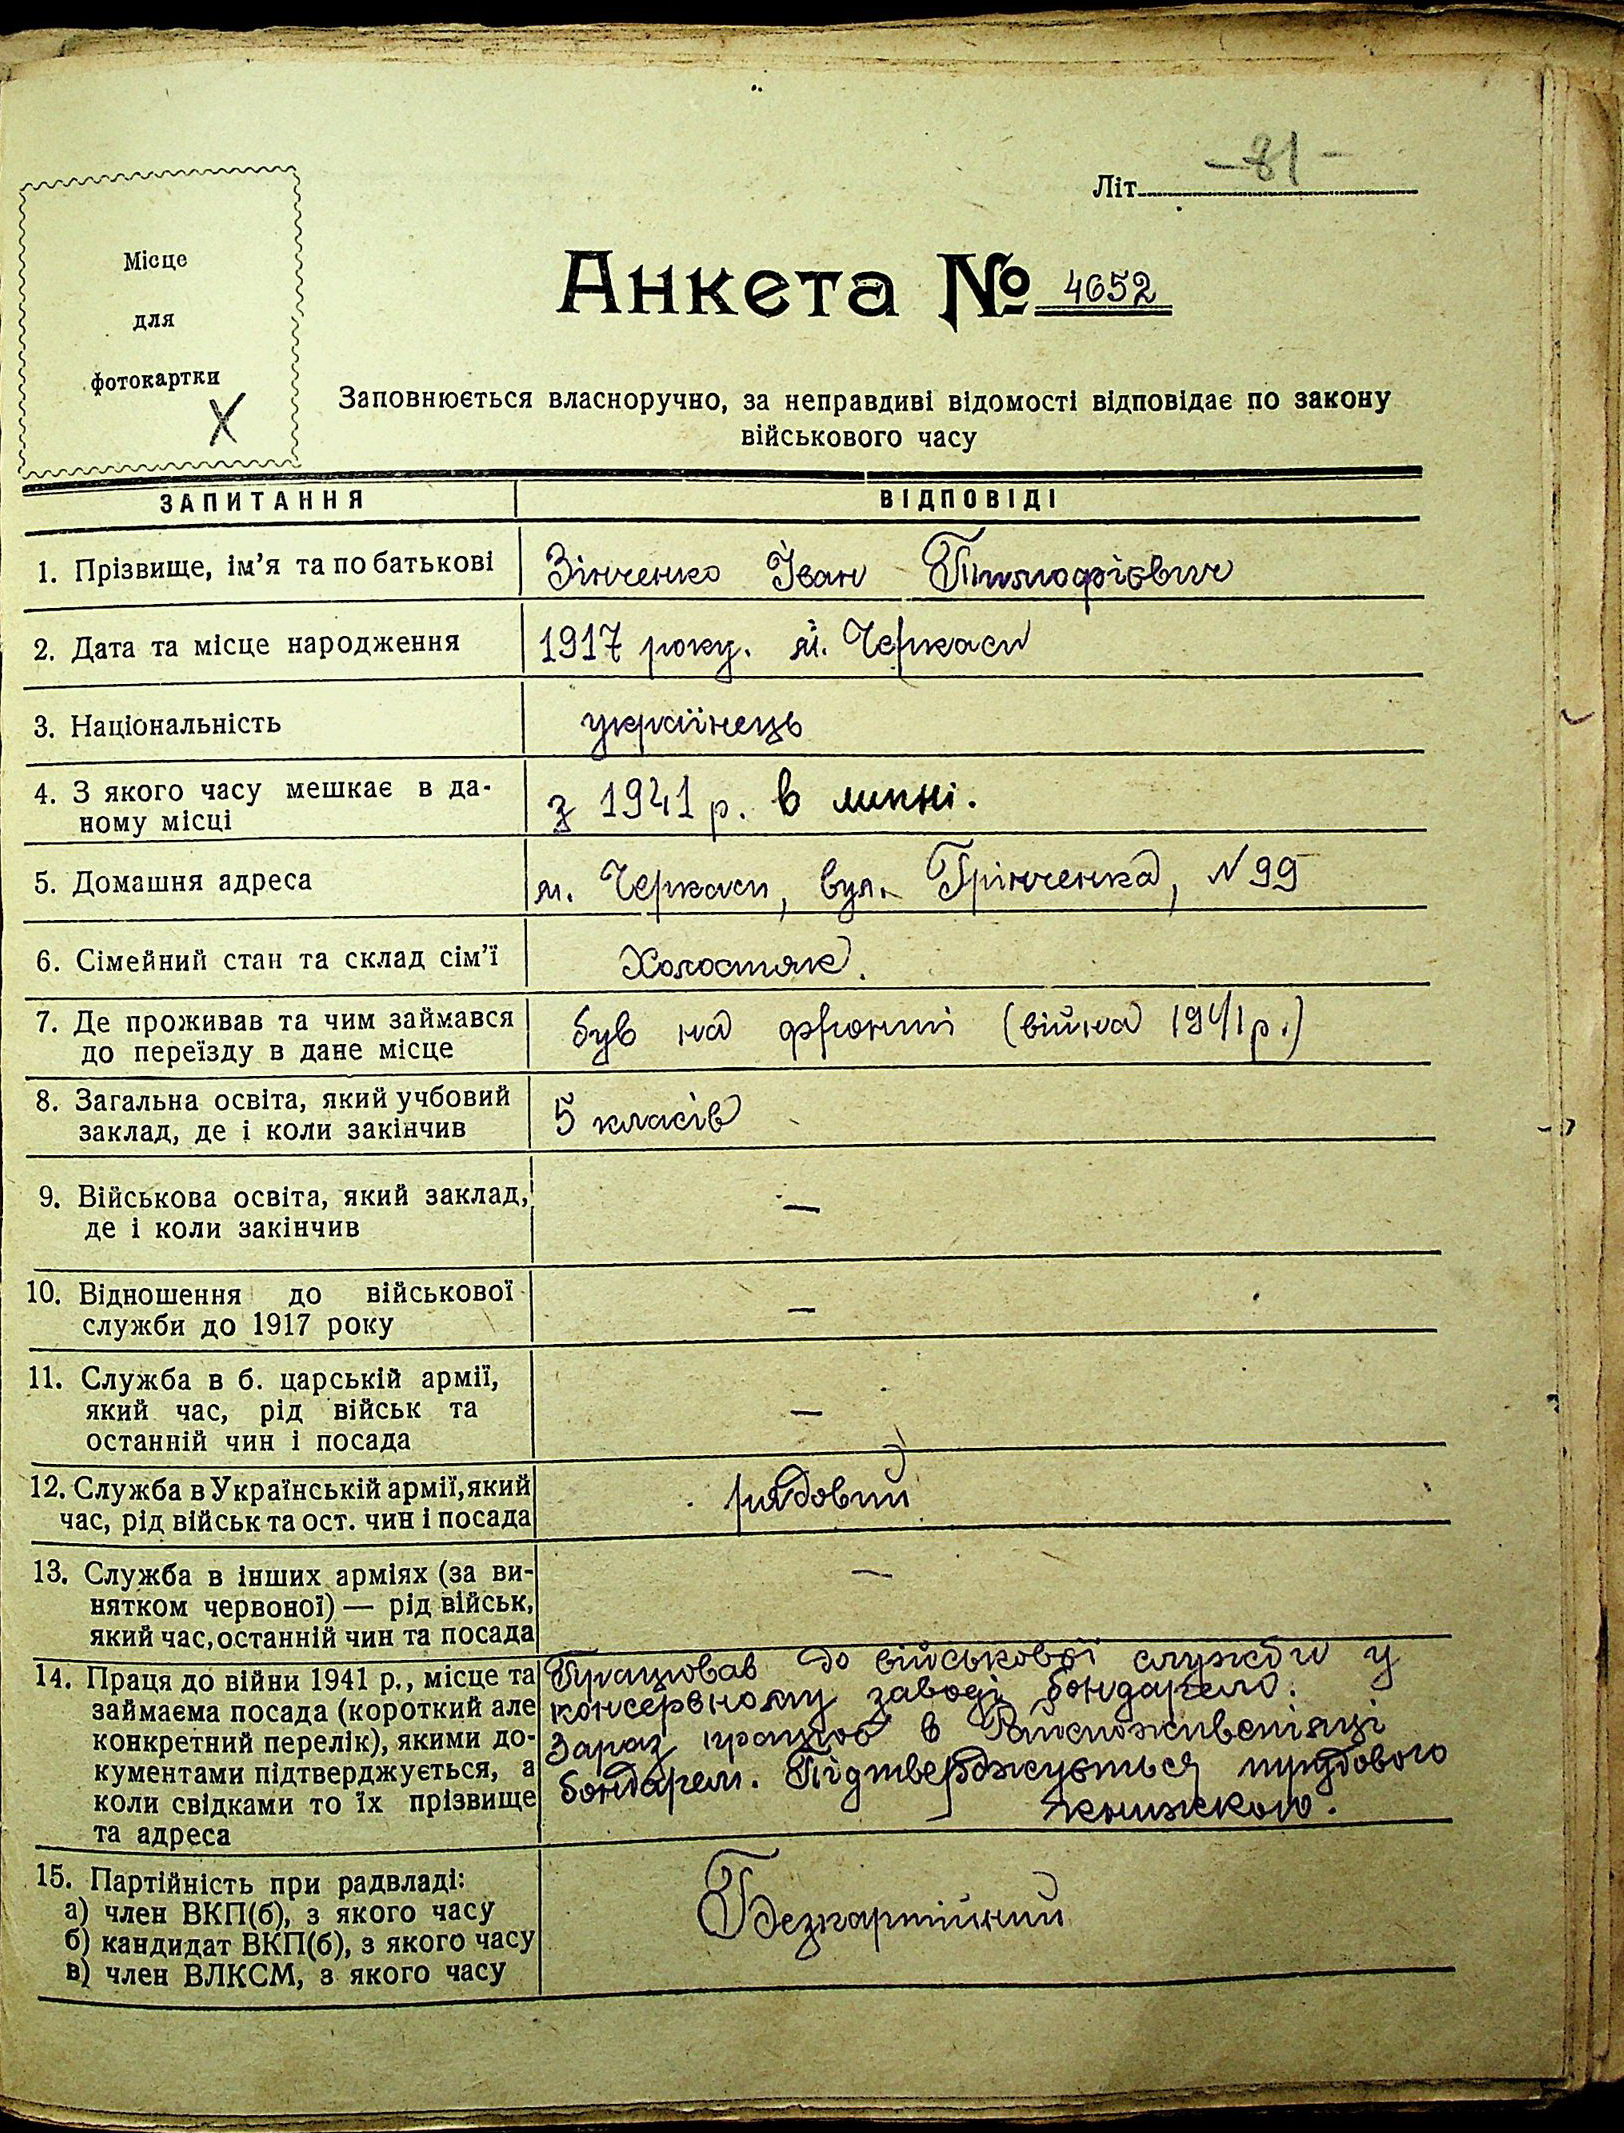 Літ. -81-
Місце
для
фотокартки
X
Анкета № 4652
Заповнюється власноручно, за неправдиві відомості відповідає по закону
військового часу
ЗАПИТАННЯ ВІДПОВІДІ
1. Прізвище, ім'я та по батькові Зінченко Іван Тимофієвич
2. Дата та місце народження 1917 року. м. Черкаси
3. Національність українець
4. З якого часу мешкає в да-
ному місці з 1941 р. в липні.
5. Домашня адреса м. Черкаси, вул. Грінченка, N 99
6. Сімейний стан та склад сім'ї Холостяк.
7. Де проживав та чим займався
до переїзду в дане місце був на фронті (війна 1941 р.)
8. Загальна освіта, який учбовий
заклад, де і коли закінчив 5 класів
9. Військова освіта, який заклад,
де і коли закінчив —
10. Відношення до військової
служби до 1917 року —
11. Служба в б. царській армії,
який час, рід військ та
останній чин і посада —
12. Служба в Українській армії, який
час, рід військ та ост. чин і посада рядовий
13. Служба в інших арміях (за ви-
нятком червоної) — рід військ,
який час, останній чин та посада —
14. Праця до війни 1941 р., місце та
займаєма посада (короткий але
конкретний перелік), якими до-
кументами підтверджується, а
коли свідками то їх прізвище
та адреса
Працював до військової служби у
консервному заводі бондарем.
Зараз працює в
бондарем. Підтверджується трудового
книжкою.
15. Партійність при радвладі:
а) член ВКП(б), з якого часу
б) кандидат ВКП(б), з якого часу
в) член ВЛКСМ, з якого часу
Безпартійний